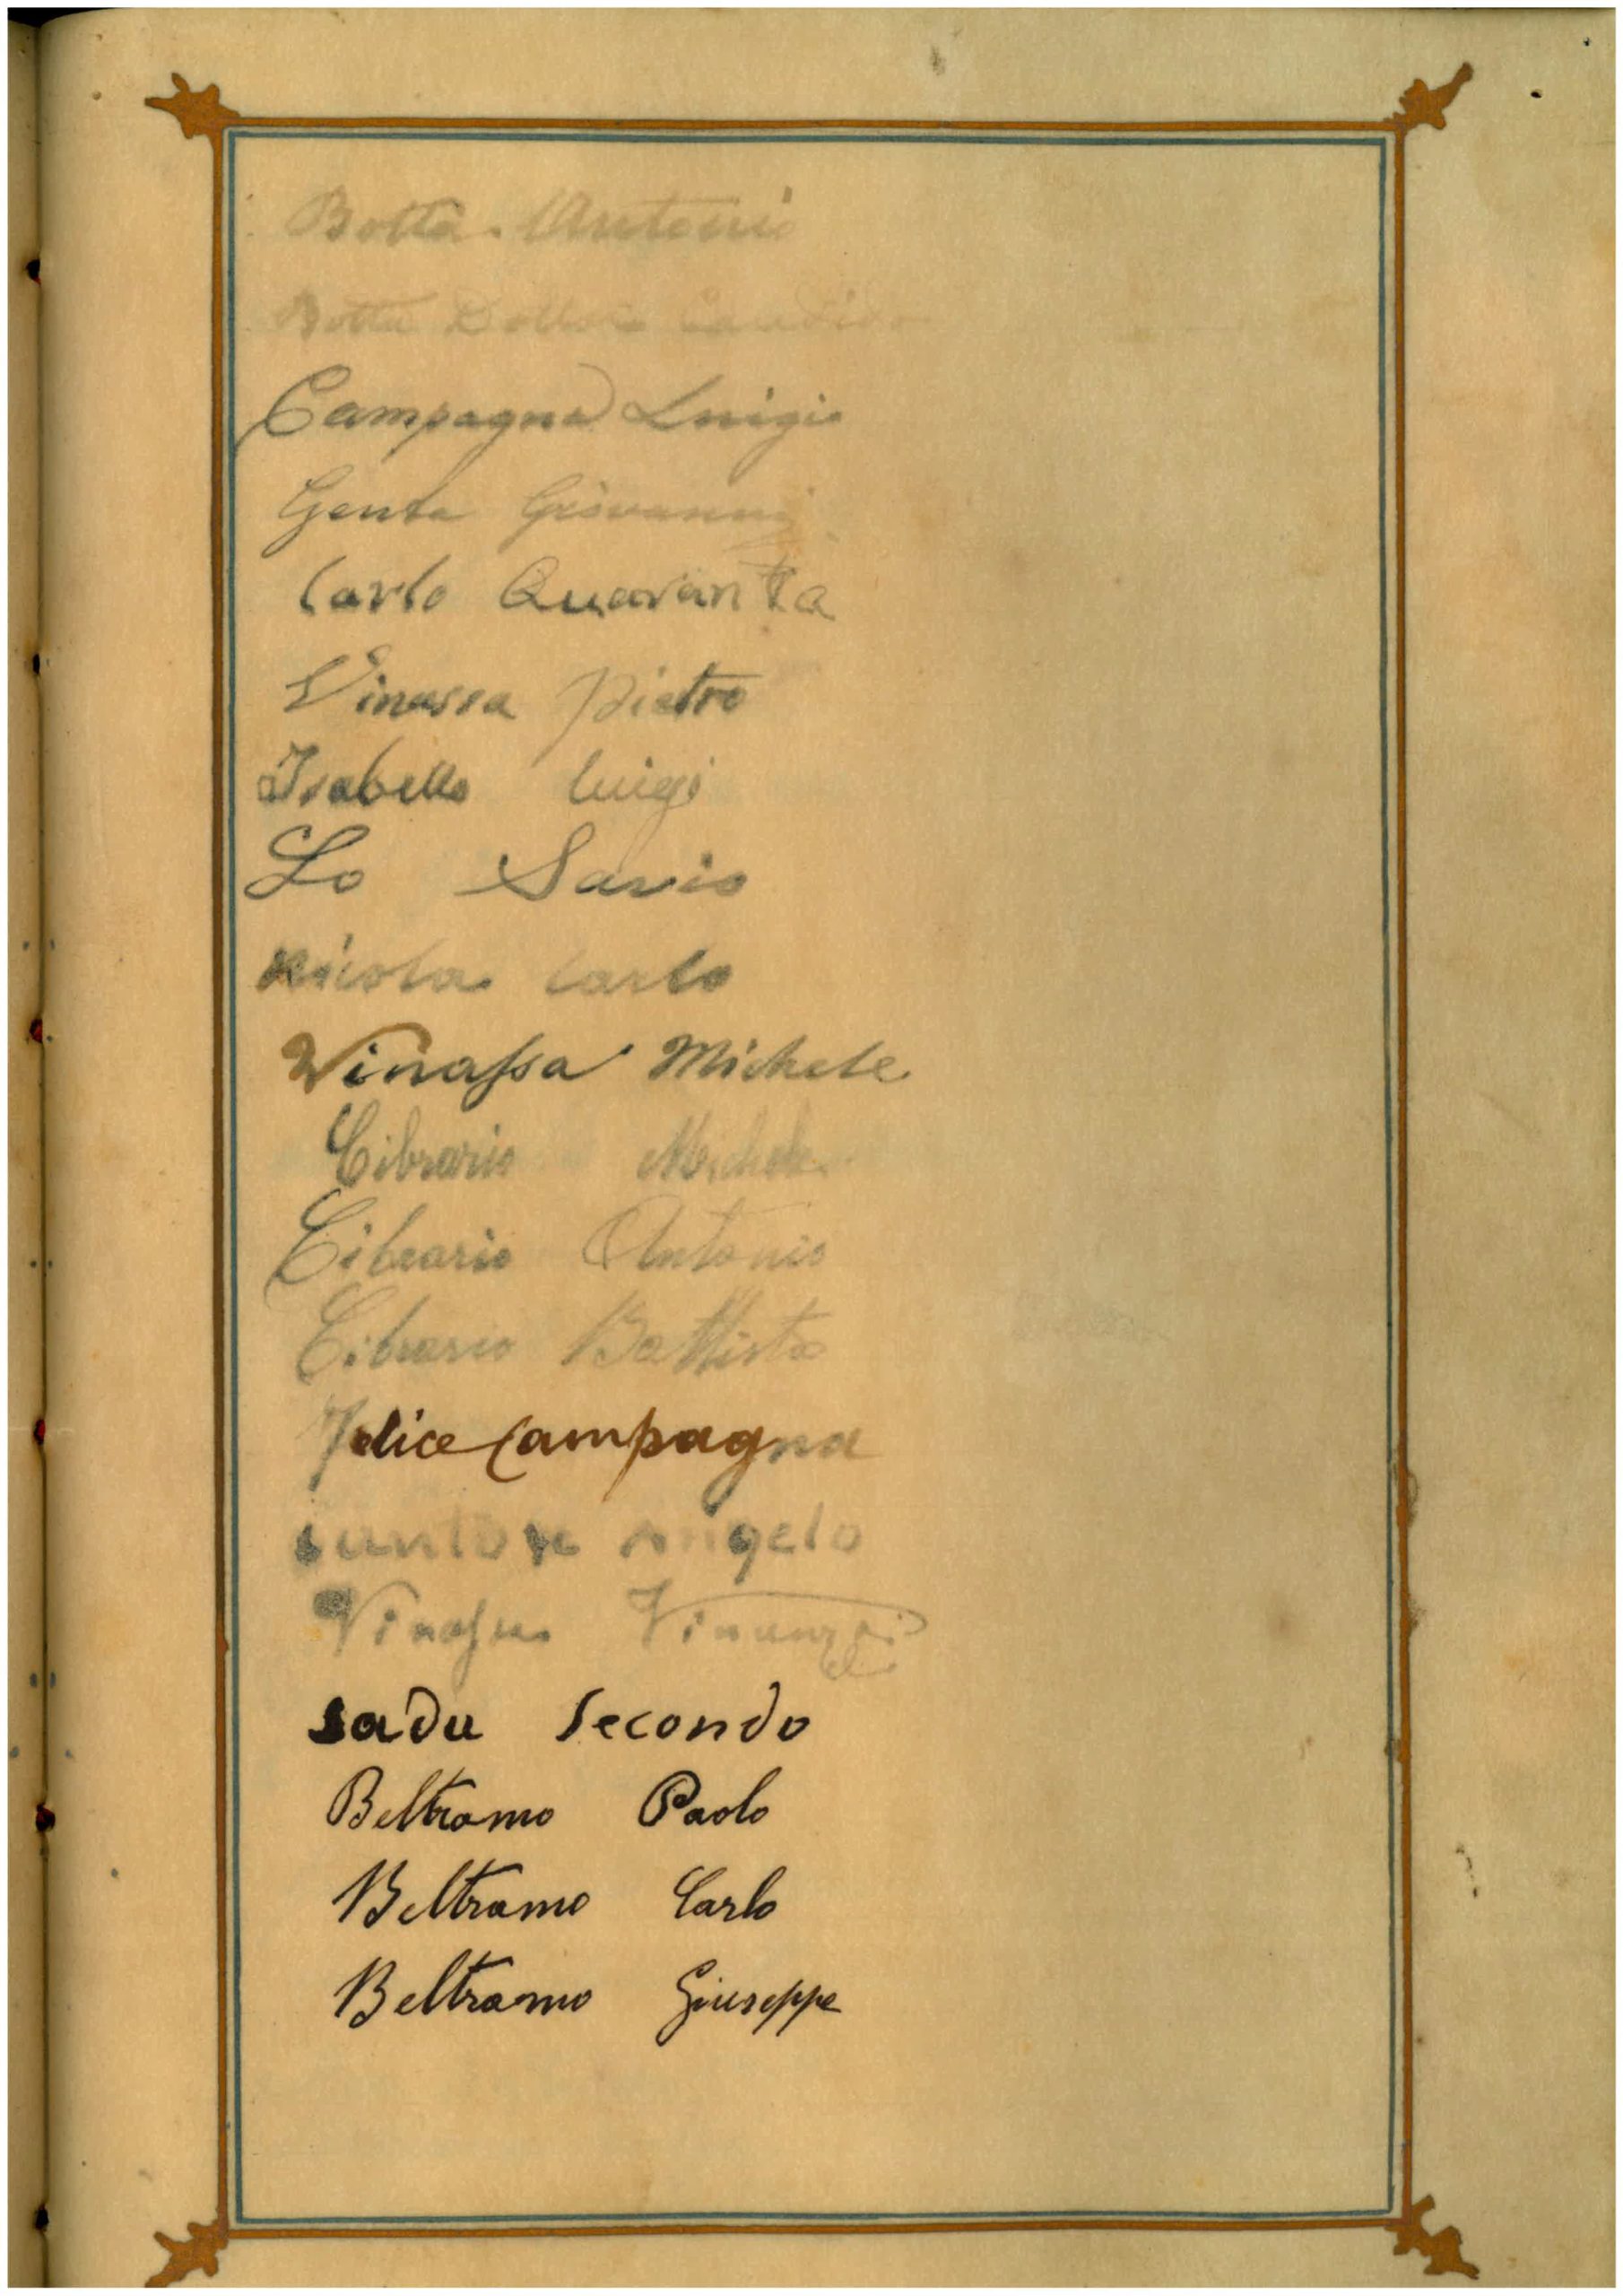 Botta Antonio
Botta Candido
Campagna Luigi
Genta Giovanni
Carlo Quaranta
Vinassa Pietro
Isabello Luigi
Lo Savio
Nicola Carlo
Vinassa Michele
Cibrario Michele
Cibrario Antonio
Cibrario Battista
Felice Campagna
Angelo
Vinassa
sadu Secondo
Beltramo Paolo
Beltramo Carlo
Beltramo Giuseppe